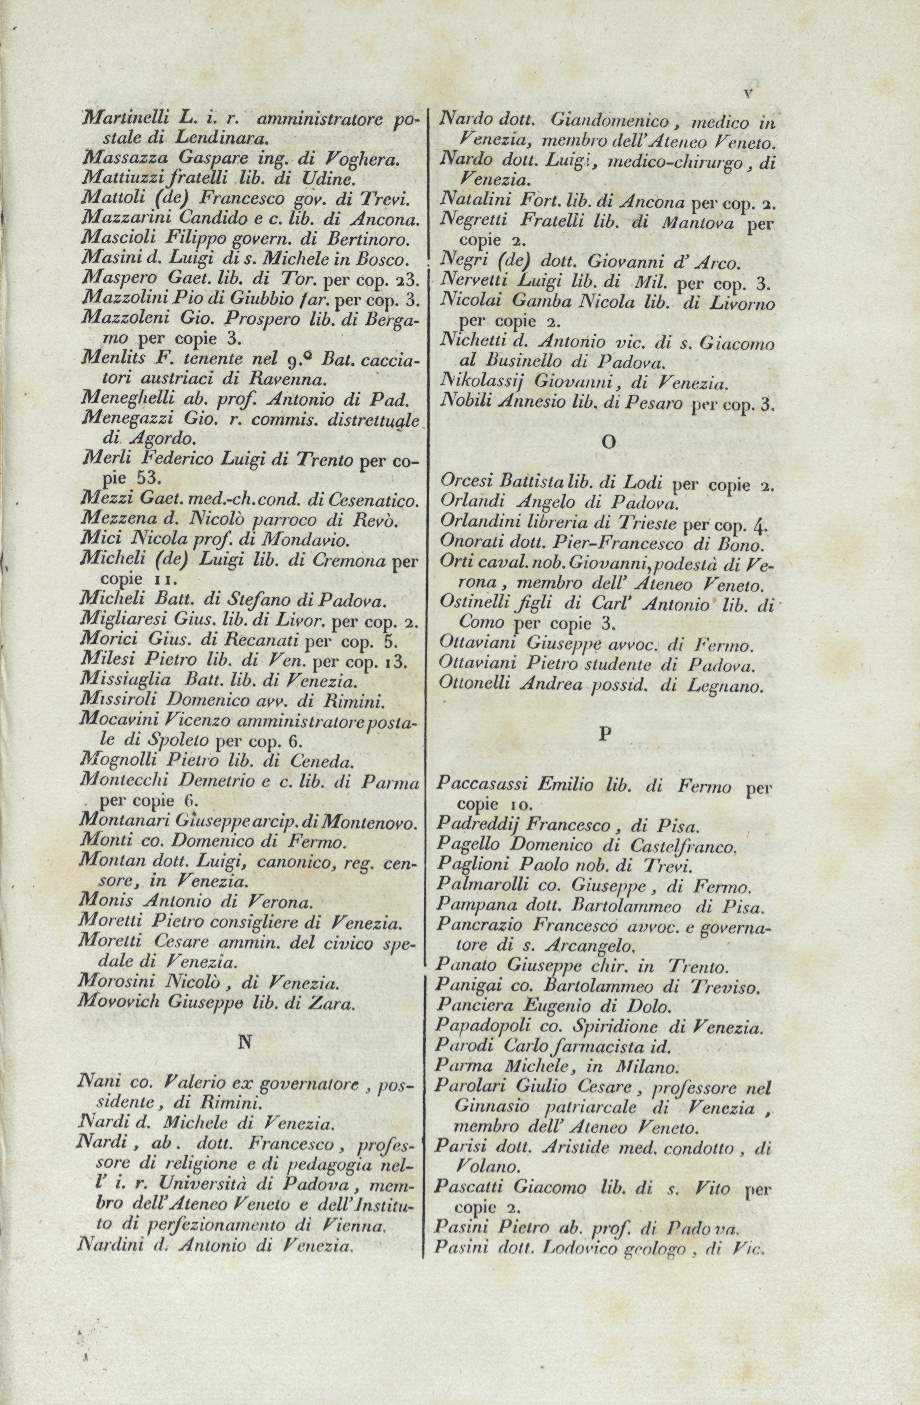 v
Martinelli L. i. r. amministratore po-
stale di Lendinara.
Massazza Gaspare ing. di Voghera.
Mattiuzzi fratelli lib. di Udine.
Mattoli (de) Francesco gov. di Trevi.
Mazzarini Candido e c. lib. di Ancona.
Mascioli Filippo govern. di Bertinoro.
Masini d. Luigi di s. Michele in Bosco.
Maspero Gaet. lib. di Tor. per cop. 23.
Mazzolini Pio di Giubbio far. per cop. 3.
Mazzoleni Gio. Prospero lib. di Berga-
mo per copie 3.
Menlits F. tenente nel 9.º Bat. caccia-
tori austriaci di Ravenna.
Meneghelli ab. prof. Antonio di Pad.
Menegazzi Gio. r. commis. distrettuale
di Agordo.
Merli Federico Luigi di Trento per co-
pie 53.
Mezzi Gaet. med.-ch. cond. di Cesenatico.
Mezzena d. Nicolò parroco di Revò.
Mici Nicola prof. di Mondavio.
Micheli (de) Luigi lib. di Cremona per
copie 11.
Micheli Batt. di Stefano di Padova.
Migliaresi Gius. lib. di Livor. per cop. 2.
Morici Gius. di Recanati per cop. 5.
Milesi Pietro lib. di Ven. per cop. 13.
Missiaglia Batt. lib. di Venezia.
Missiroli Domenico avv. di Rimini.
Mocavini Vicenzo amministratore posta-
le di Spoleto per cop. 6.
Mognolli Pietro lib. di Ceneda.
Montecchi Demetrio e c. lib. di Parma
per copie 6.
Montanari Giuseppe arcip. di Montenovo.
Monti co. Domenico di Fermo.
Montan dott. Luigi, canonico, reg. cen-
sore, in Venezia.
Monis Antonio di Verona.
Moretti Pietro consigliere di Venezia.
Moretti Cesare ammin. del civico spe-
dale di Venezia.
Morosini Nicolò, di Venezia.
Movovich Giuseppe lib. di Zara.
N
Nani co. Valerio ex governatore, pos-
sidente, di Rimini.
Nardi d. Michele di Venezia.
Nardi, ab. dott. Francesco, profes-
sore di religione e di pedagogia nel-
l' i. r. Università di Padova, mem-
bro dell'Ateneo Veneto e dell'Institu-
to di perfezionamento di Vienna.
Nardini d. Antonio di Venezia.
Nardo dott. Giandomenico, medico in
Venezia, membro dell'Ateneo Veneto.
Nardo dott. Luigi, medico-chirurgo, di
Venezia.
Natalini Fort. lib. di Ancona per cop. 2.
Negretti Fratelli lib. di Mantova per
copie 2.
Negri (de) dott. Giovanni d'Arco.
Nervetti Luigi lib. di Mil. per cop. 3.
Nicolai Gamba Nicola lib. di Livorno
per copie 2.
Nichetti d. Antonio vic. di s. Giacomo
al Businello di Padova.
Nikolassij Giovanni, di Venezia.
Nobili Annesio lib. di Pesaro per cop. 3.
O
Orcesi Battista lib. di Lodi per copie 2.
Orlandi Angelo di Padova.
Orlandini libreria di Trieste per cop. 4.
Onorati dott. Pier-Francesco di Bono.
Orti caval. nob. Giovanni, podestà di Ve-
rona, membro dell' Ateneo Veneto.
Ostinelli figli di Carl' Antonio lib. di
Como per copie 3.
Ottaviani Giuseppe avvoc. di Fermo.
Ottaviani Pietro studente di Padova.
Ottonelli Andrea possid. di Legnano.
P
Paccasassi Emilio lib. di Fermo per
copie 10.
Padreddij Francesco, di Pisa.
Pagello Domenico di Castelfranco.
Paglioni Paolo nob. di Trevi.
Palmarolli co. Giuseppe, di Fermo.
Pampana dott. Bartolammeo di Pisa.
Pancrazio Francesco avvoc. e governa-
tore di s. Arcangelo.
Panato Giuseppe chir. in Trento.
Panigai co. Bartolammeo di Treviso.
Panciera Eugenio di Dolo.
Papadopoli co. Spiridione di Venezia.
Parodi Carlo farmacista id.
Parma Michele, in Milano.
Parolari Giulio Cesare, professore nel
Ginnasio patriarcale di Venezia,
membro dell' Ateneo Veneto.
Parisi dott. Aristide med. condotto, di
Volano.
Pascatti Giacomo lib. di s. Vito per
copie 2.
Pasini Pietro ab. prof. di Padova.
Pasini dott. Lodovico geologo, di Vic.